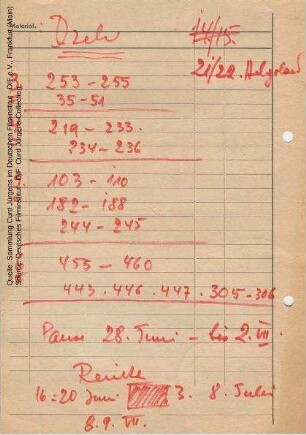 Material:
Dreh
14/15.
21/22. Helgoland
253 - 255
35 - 51
219 - 233.
234 - 236
103 - 110
182 - 188
244 - 245
455 - 460
443 · 446 · 447 · 305 - 306
Pause 28. Juni - bis 2. VII.
16 = 20 Juni 3. 8. Juli
8.9. VII.
Quelle: Sammlung Curd Jürgens im Deutschen Filminstitut - DIF e.V., Frankfurt (Main)
Source: Deutsches Filminstitut - DIF: Curd Jürgens Collection